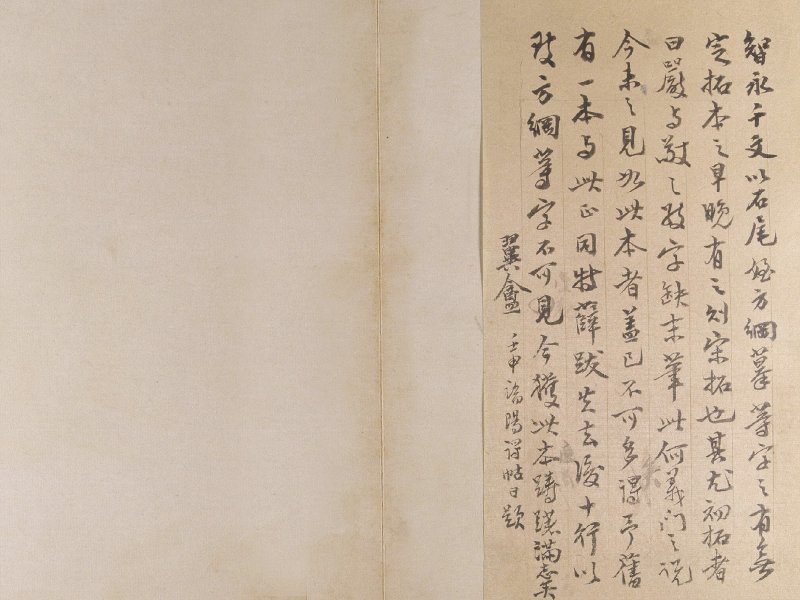 智永千文以石尾姪方綱摹等字之有無
定拓本之早晚有之則宋拓也其尤初拓者
曰嚴与敬之數字缺末筆此何義門之說
今未之見如此本者蓋已不可多得予舊
有一本与此正同特薛跋失去後十行以
致方綱等字不可見今獲此本躊躇滿志矣
翼盦 壬申洛陽得帖日題